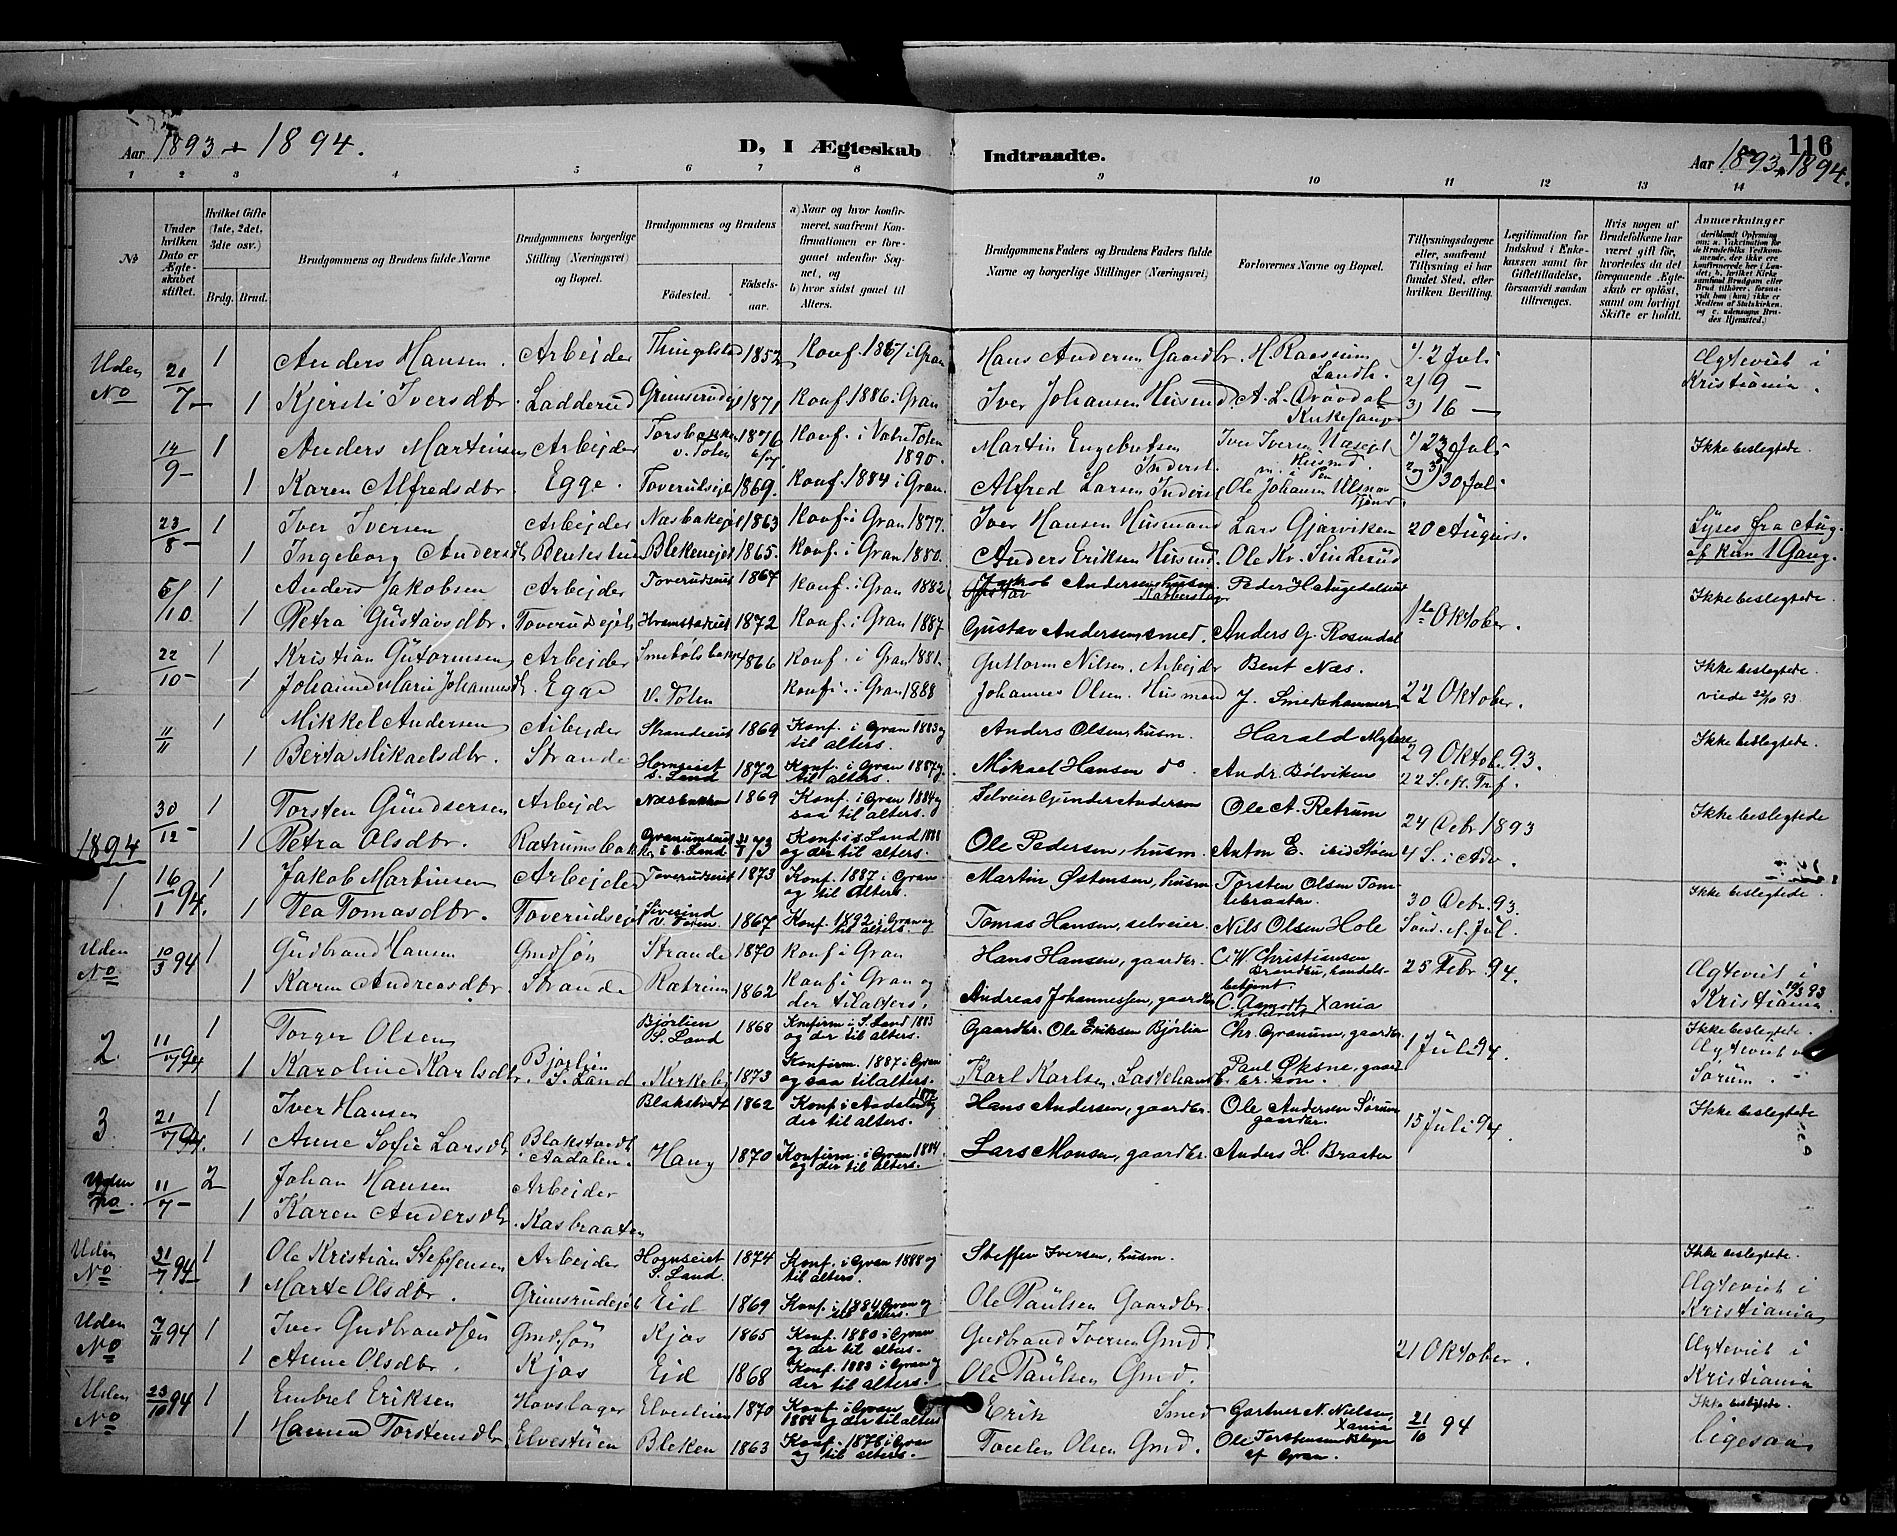 Aar 1893 & 1894.
D, I Ægteskab Indtraadte.
116
Aar 1893 & 1894.
1 2 3 4 5 6 7 8 9 10 11 12 13 14
No
Under hvilken Dato er Ægteskabet stiftet.
Hvilket Gifte (1ste, 2det, 3die osv.)
Brdg. Brud.
Brudgommens og Brudens fulde Navne
Brudgommens borgerlige Stilling (Næringsvei) og Bopæl.
Brudgommens og Brudens
Fødested. Fødselsaar.
a) Naar og hvor konfirmeret, saafremt Konfirmationen er foregaaet udenfor Sognet, og
b) hvor sidst gaaet til Alters.
Brudgommens Faders og Brudens Faders fulde Navne og borgerlige Stillinger (Næringsvei)
Forlovernes Navne og Bopæl.
Tillysningsdagene eller, saafremt Tillysning ei har fundet Sted, efter hvilken Bevilling.
Legitimation for Indskud i Enkekassen samt for Giftetilladelse, forsaavidt saadan tiltrænges.
Hvis nogen af Brudefolkene har været gift før, hvorledes da det foregaaende Ægteskab er opløst, samt om lovligt Skifte er holdt.
Anmærkninger
Uden No 21/7 1 Anders Hansen. Arbejder Thingelstad 1852 Konf. 1867 i Gran Hans Andersen Gaardbr. H. Raassum Landh. 1) 2 Juli Ægteviet i
1 Kjersti Iversdbr. Ladderud Grimsrudej 1871 Konf. 1886 i Gran Iver Johansen Husmd. A. L. Kirkesanger 2) 9 – 3) 16 – Kristiania.
14/9 1 Anders Martinsen Arbejder Torsbakken V. Toten 1876 Konf. i Vstre Toten 1890. Martin Engebretsen Inderst. Iver Iversen 1) 23 Juli Ikke beslegtede.
1 Karen Alfredsdbr. Egge. Toverudsejet 1869. Konf. 1884 i Gran. Alfred Larsen Inderst Ole Johansen 2 og 3) 30 Juli
23/8 1 Iver Iversen Arbejder Næsbakej 1863 Konf. i Gran 1877. Iver Hansen Husmand Lars Gjærviken 20 August. Lyses fra Aug.
1 Ingeborg Andersdt Bentestuen Blekenejet 1865. Konf. i Gran 1880. Anders Eriksen Husmd. Ole Kr. af kun 1 Gang.
5/10 1 Anders Jakobsen Arbejder Toverudseiet 1867 Konf. i Gran 1882 Jakob Andersen husm. Peder Haugedalen Ikke beslegtede.
1 Petra Gustavsdbr. Toverudsejet Hvamstadeiet 1872 Konf. i Gran 1887 Gustav Andersen smed. Anders G. Rosendal 1ste Oktober.
22/10 1 Kristian Gutormsen Arbejder 1866 Konf. i Gran 1881. Guttorm Nilsen. Arbejdr Bent Næs. Ikke beslegtede
1 Johanne Marie Johannesdt. Egge V. Toten Konf. i Gran 1888 Johannes Olsen. Husmand J. Smedshammer 22 Oktober. viede 22/10 93
11/11 1 Mikkel Andersen Arbejder Strandeeiet 1869 Konf. i Gran 1883 og til alters. Anders Olsen, husm. Harald 29 Oktob. 93. Ikke beslegtede.
1 Berta Mikaelsdbr. Strande Hornseiet S. Land 1872 Konf. i Gran 1887 og til alters. Mikael Hansen do Andr. Bølviken 22 S. eft. Trf.
30/12 1 Torsten Gundersen Arbejdr Næsbakken 1869 Konf. i Gran 1884 og saa til alters. Selveier Gunder Andersen Ole A. Retrum 24 Debr 1893 Ikke beslegtede
1 Petra Olsdbr. Rætrumsbak Granumseiet i S. Land 73 Konf. i S. Land 1888 og der til alters. Ole Pedersen, husm. Anton E. Støen 4 S. i Adv.
1894
1. 16/1 94. 1 Jakob Martinsen Arbejder Toverudseiet 1873 Konf. 1887 i Gran og til Alters. Martin Østensen, husm Torsten Olsen Tomlebraaten. 30 Debr. 93. Ikke beslegtede
1 Tea Tomasdbr. Toverudsejet V. Toten 1867 Konf. 1892 i Gran og til alters. Tomas Hansen, selveier. Nils Olsen Hole Sønd. ef. Jul.
Uden No 10/3 94 1 Gudbrand Hansen Gmdsøn Strande 1870 Konf i Gran Hans Hansen, gaardbr. C. W Christiansen Brandbu, handelsbetjent 25 Febr. 94. Ægteviet i
1 Karen Andreasdbr. Strande Rætrum 1862 Konf i Gran og der til alters. Andreas Johannessen, gaardbr C. Xania Kristiania 10/3 93
2 11/7 94 1 Torger Olsen Bjørlien S. Land 1868 Konfirm i S. Land 1883 og der til alters. Gaardbr. Ole Eriksen Bjørlien Chr. Granum, gaardbr. 1 Juli 94. Ikke beslegtede.
1 Karoline Karlsdbr. Bjørlien S. Land 1873 Konfirm. 1887 i Gran og saa til alters. Karl Karlsen, Paul Øksne, Ægteviet i Sørum.
3 21/7 94. 1 Iver Hansen 1862 Konf. i Aadalen og der til alters. Hans Andersen, gaardbr. Ole Andersen Sørum gaardbr. 15 Juli 94. Ikke beslegtede
1 Anne Sofie Larsdt Aadalen. Haug 1870 Konfirm. i Gran 1884 og der til alters. Lars Monsen, gaardbr. Anders H. Braaten
Uden No. 11/7 2 Johan Hansen Arbejder
1 Karen Andersdbr. Kasbraaten
Uden No 31/7 94 1 Ole Kristian Steffensen Arbejder Hognseiet S. Land. 1874 Konf. i Gran 1888 og til alters. Steffen Iversen, husm. Ikke beslegtede.
1 Marte Olsdbr. Grimsrudejet Eid 1869 Konf. i 1884 Gran og til alters. Ole Paulsen Gaardbr. Ægteviet i Kristiania
Uden No 7/11 94 1 Iver Gudbrandsen Gmdsøn Kjos 1865 Konf. 1880 i Gran og der til alters. Gudbrand Iversen Gmd. 21 Oktober. Ægteviet i
1 Anne Olsdbr. Kjos Eid 1868 Konf. 1883 i Gran og der til alters. Ole Paulsen Gmd. Kristiania
Uden No 23/10 94 1 Embret Eriksen Hovslager Elvestuen 1870 Konf. i Gran 1884 og der til alters Erik Smed Gartner N. Nielsen, Xania 21/10 94 Ikke beslegtede.
1 Hanna Torstensdbr. Elvestuen Bleken 1863 Konf. 1878 i Gran og til alters. Olsen Gmd. Ole Torstensen Bleken af Gran. Ligesaa